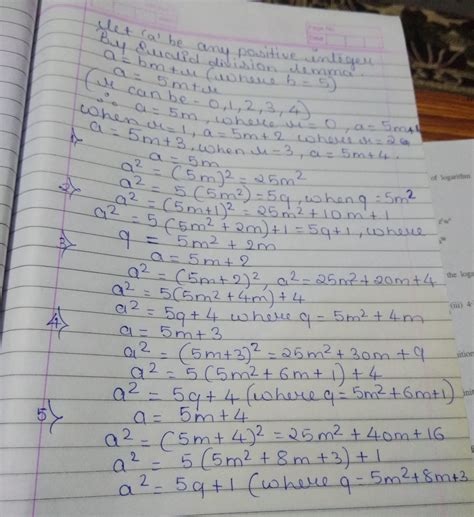 Page No.
Date
Let 'a' be any positive integer
By Euclid division lemma
a = bm+r (where b = 5)
a = 5m+r
(r can be = 0,1,2,3,4)
∴ a = 5m, where r = 0, a = 5m+1
when r = 1, a = 5m+2 where r = 2
a = 5m+3, when r = 3, a = 5m+4.
1)
a = 5m
a² = (5m)² = 25m²
a² = 5(5m²) = 5q, when q = 5m²
2)
a² = (5m+1)² = 25m² + 10m + 1
a² = 5(5m² + 2m) + 1 = 5q + 1, where
q = 5m² + 2m
3)
a = 5m + 2
a² = (5m+2)², a² = 25m² + 20m + 4
a² = 5(5m² + 4m) + 4
a² = 5q + 4 where q = 5m² + 4m
4)
a = 5m + 3
a² = (5m+3)² = 25m² + 30m + 9
a² = 5(5m² + 6m + 1) + 4
a² = 5q + 4 (where q = 5m² + 6m + 1)
5)
a = 5m + 4
a² = (5m + 4)² = 25m² + 40m + 16
a² = 5(5m² + 8m + 3) + 1
a² = 5q + 1 (where q = 5m² + 8m + 3
of logarithm
the loga
(iii) 4